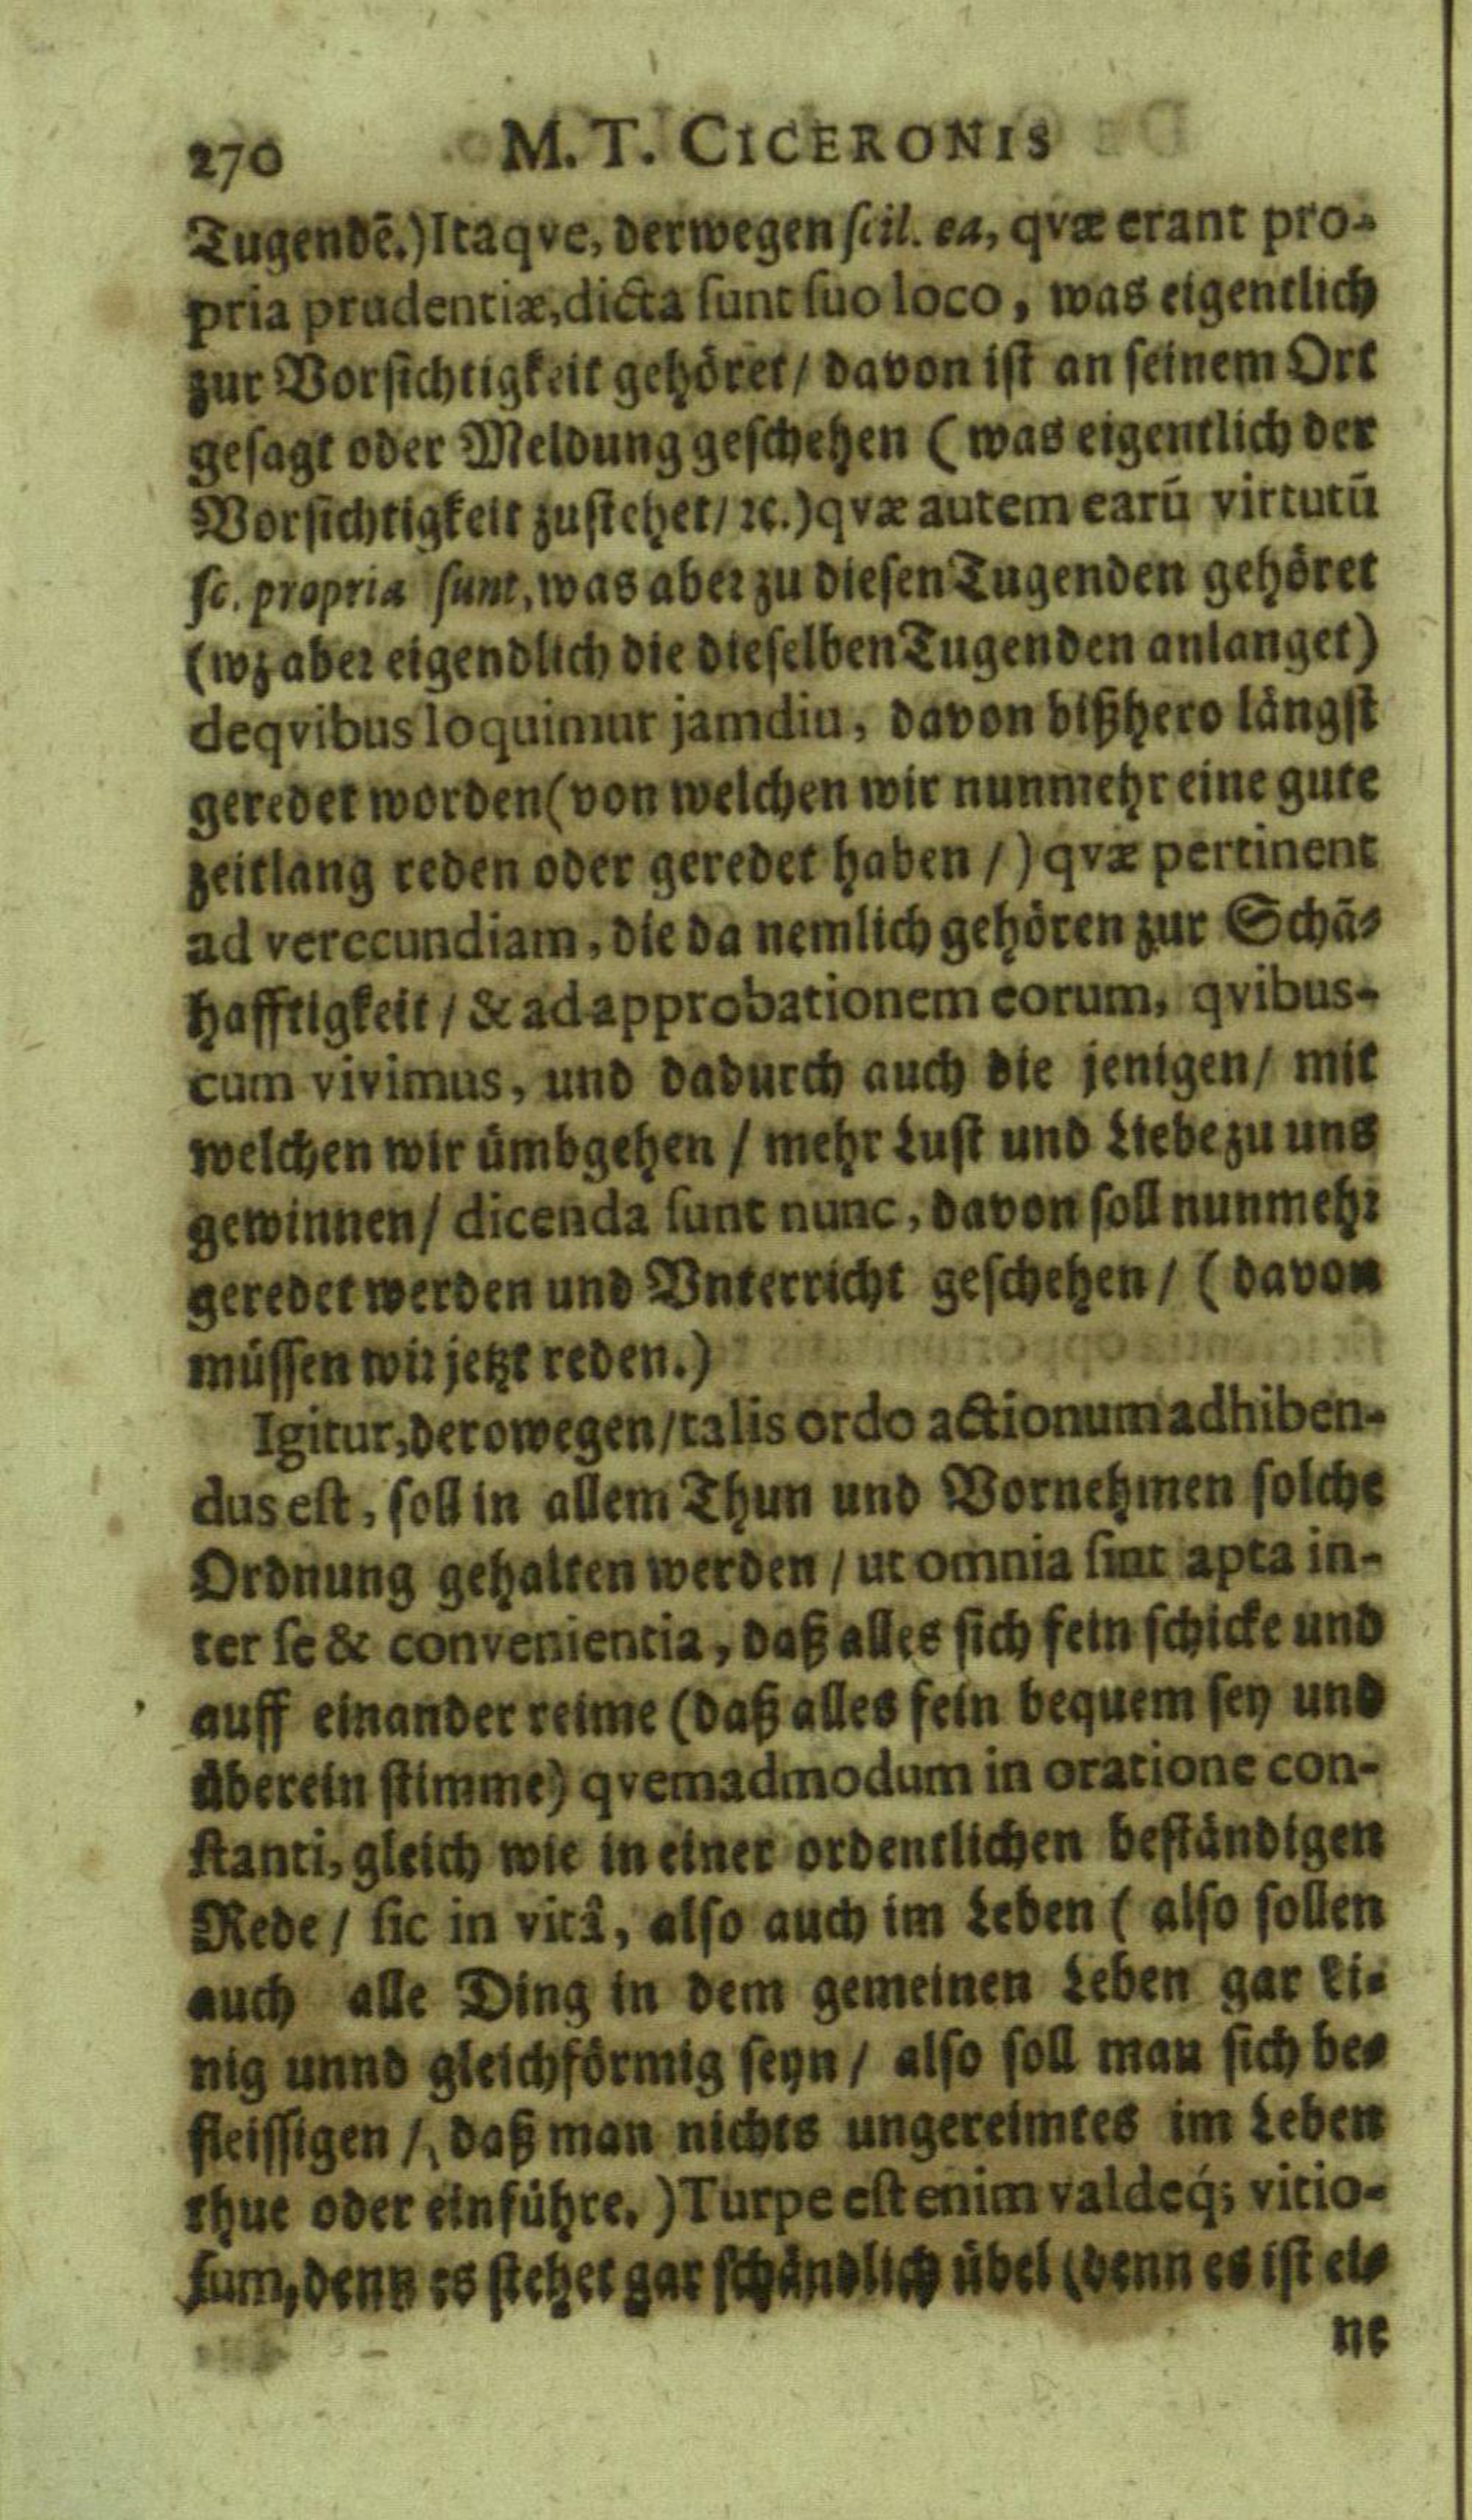 270 M. T. CICERONIS
Tugendē.) Itaqve, derwegen scil. ea, qvæ erant pro-
pria prudentiæ, dicta sunt suo loco, was eigentlich
zur Vorsichtigkeit gehöret / davon ist an seinem Ort
gesagt oder Meldung geschehen (was eigentlich der
Vorsichtigkeit zustehet / ꝛc.) qvæ autem earū virtutū
sc. propria sunt, was aber zu diesen Tugenden gehöret
(wz aber eigendlich die dieselben Tugenden anlanget)
deqvibus loquimur jamdiu, davon bißhero längst
geredet worden (von welchen wir nunmehr eine gute
zeitlang reden oder geredet haben /) qvæ pertinent
ad verecundiam, die da nemlich gehören zur Schā-
hafftigkeit / & ad approbationem eorum, qvibus-
cum vivimus, und dadurch auch die jenigen / mit
welchen wir ümbgehen / mehr Lust und Liebe zu uns
gewinnen / dicenda sunt nunc, davon soll nunmehr
geredet werden und Vnterricht geschehen / (davon
müssen wir jetzt reden.)
Igitur, derowegen / talis ordo actionum adhiben-
dus est, soll in allem Thun und Vornehmen solche
Ordnung gehalten werden / ut omnia sint apta in-
ter se & convenientia, daß alles sich fein schicke und
auff einander reime (daß alles fein bequem sey und
überein stimme) qvemadmodum in oratione con-
stanti, gleich wie in einer ordentlichen beständigen
Rede / sic in vitâ, also auch im Leben (also sollen
auch alle Ding in dem gemeinen Leben gar ei-
nig unnd gleichförmig seyn / also soll man sich be-
fleissigen /, daß man nichts ungereimtes im Leben
thue oder einführe.) Turpe est enim valdeq́; vitio-
sum, denn es stehet gar schändlich übel (denn es ist ei-
ne